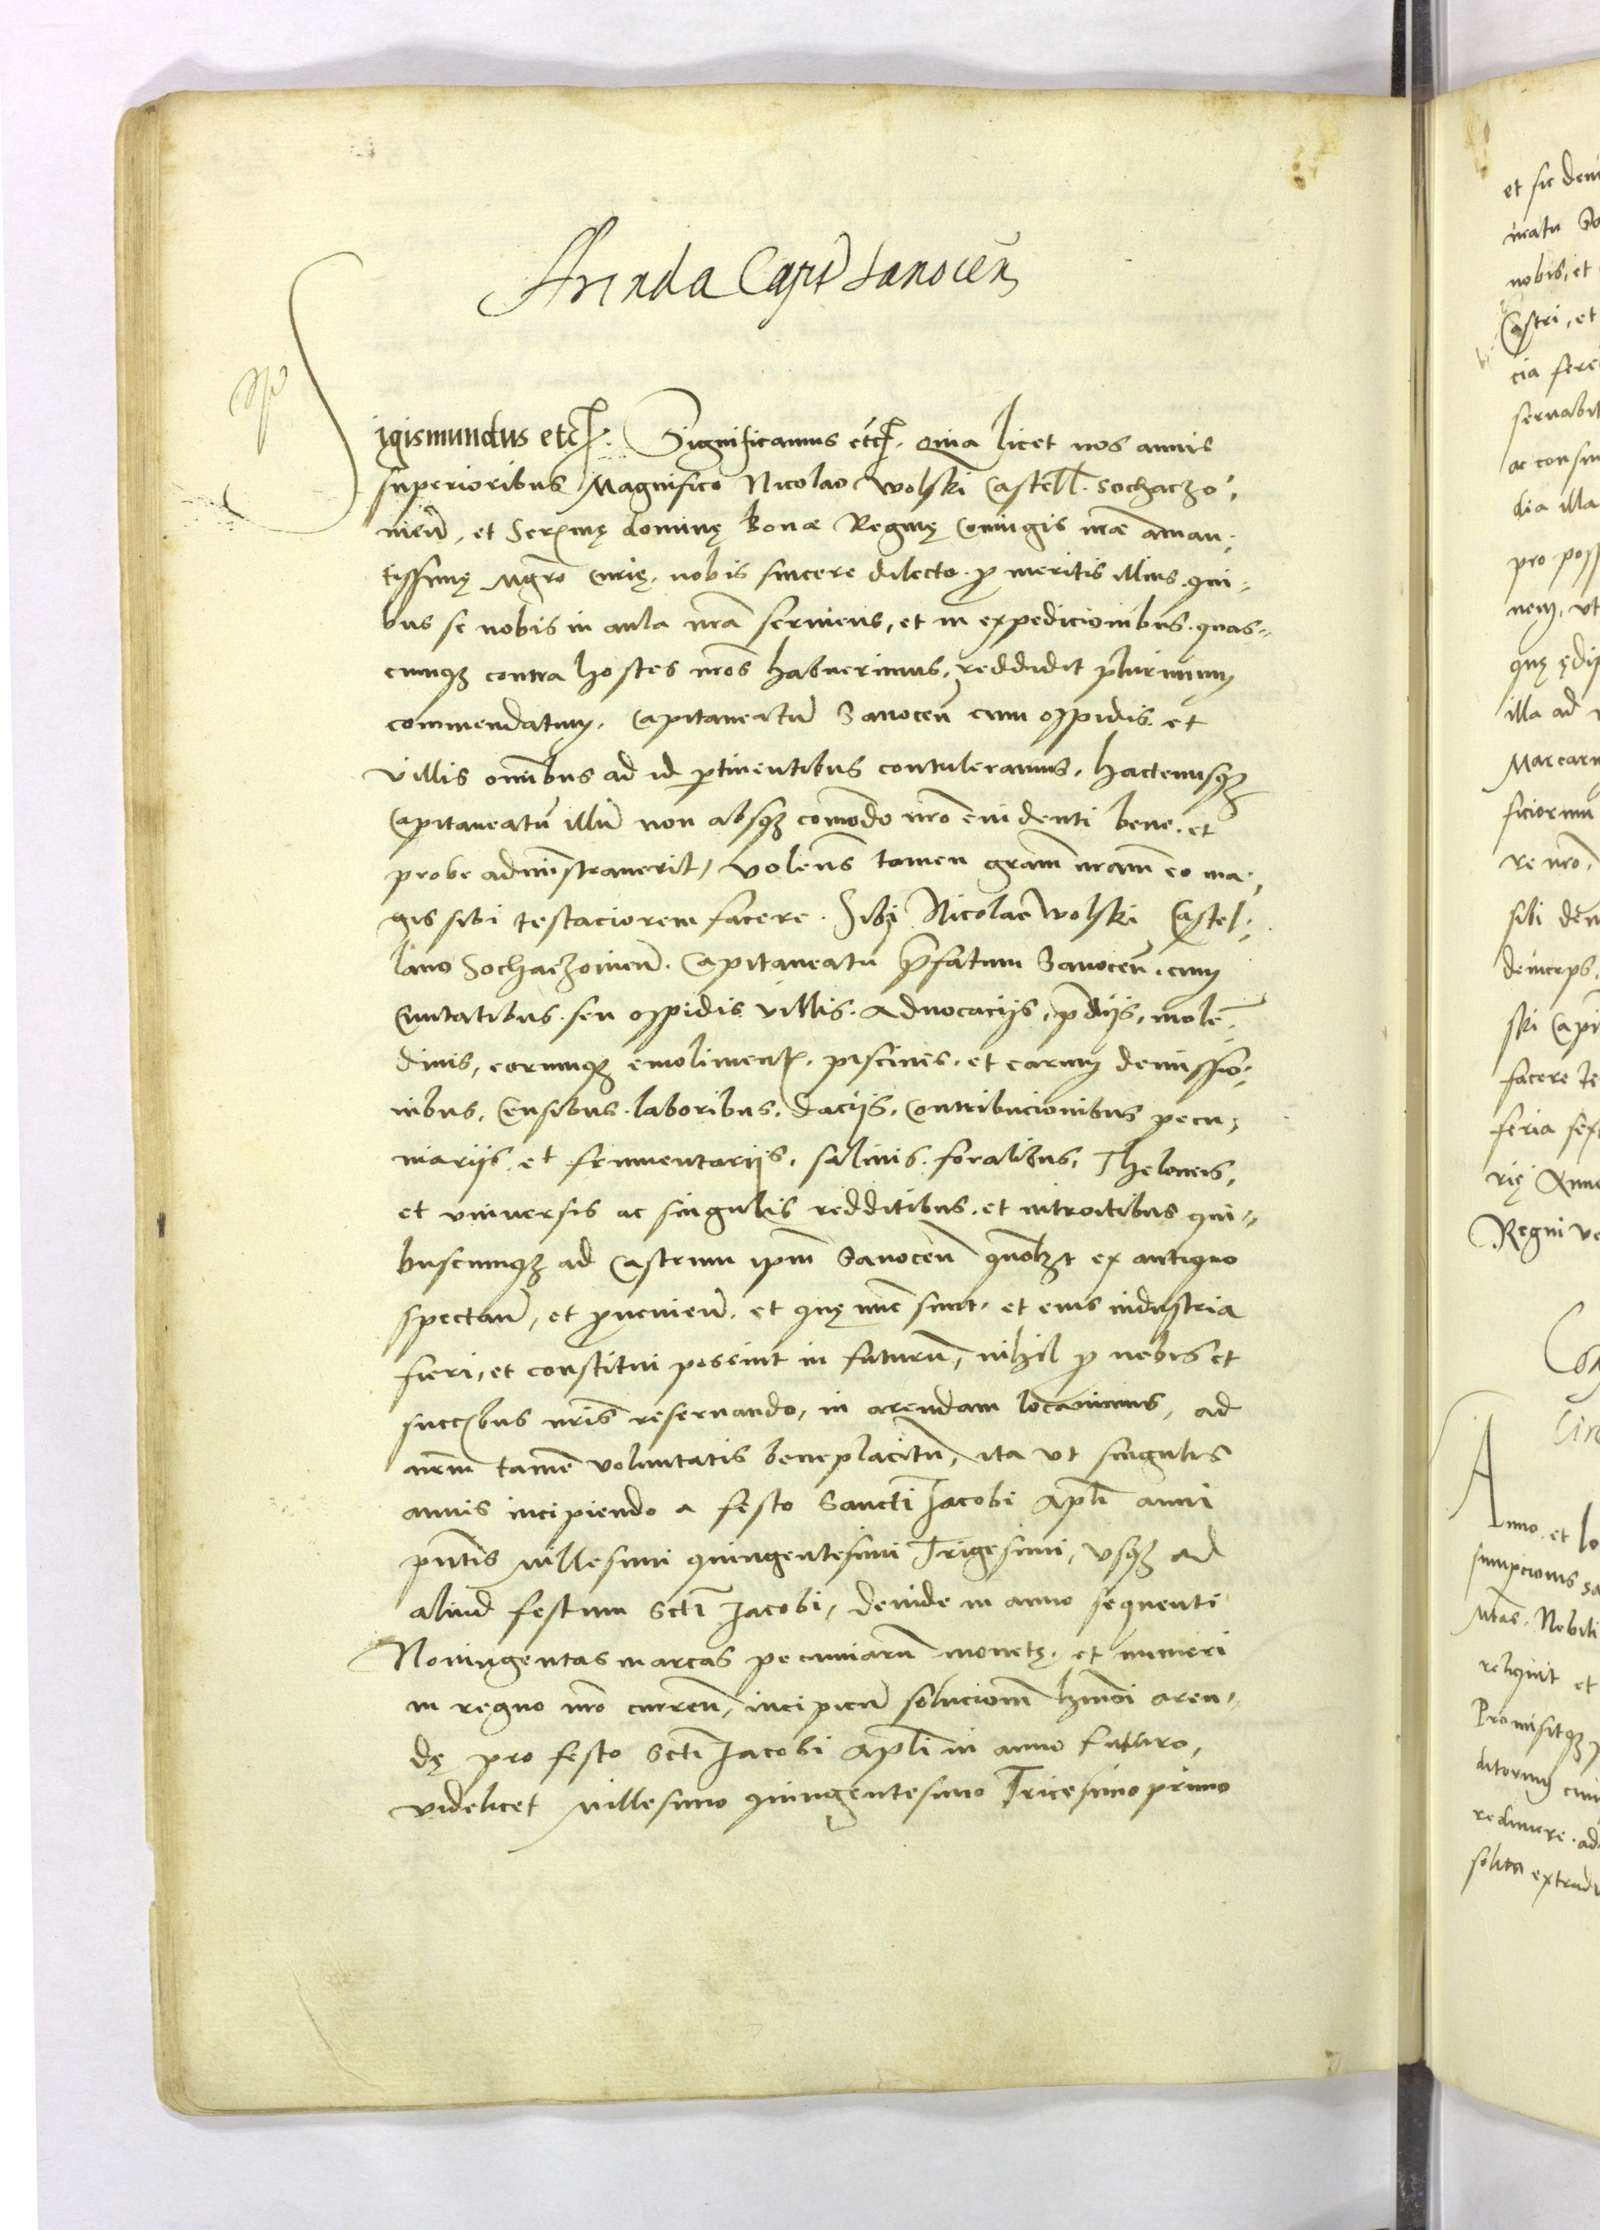 Arenda Capit Sanocen
Sigismundus etc. Significamus etc. Quia licet nos annis
superioribus Magnifico Nicolao Wolski Castell. Sochaczo,
nien, et Serme dominę Bonae Reginę Coniugis nrae aman,
tissimę Mgro Curię, nobis sincere dilecto. p meritis illius, qui,
bus se nobis in aula nra serviens, et in expedicionibus, quas,
cunqz contra hostes nros habuerimus, reddidit plurimum
commendatum, Capitaneatu Sanocen cum oppidis et
villis omibus ad id ptinentibus contuleramus, hactenusqz
Capitaneatu illu non absqz comodo nro evidenti bene, et
probe administraverit, volens tamen gram nram eo ma,
gis sibi testaciorem facere. Sibi Nicolao Wolski Castel,
lano Sochaczovien. Capitaneatu pfatum Sanocen, cum
Civitatibus, seu oppidis villis. Advocacijs, pdijs, molen,
dinis, eorumqz emoliment, piscinis, et earum demissio,
nibus, Censibus, laboribus, dacijs, Contribucionibus pecu,
niarijs, et frumentarijs, salinis, foralibus, Theloneis,
et universis ac singulis redditibus, et introitibus qui,
buscumqz ad Castrum ipm Sanocen quolzt ex antiquo
spectan, et pvenien, et quę nunc sunt, et eius industria
fieri, et constitui possint in futuru, nihil p nobis et
succbus nris reservando, in arendam locavimus, ad
nrm tame voluntatis beneplacitu, ita ut singulis
annis incipiendo a festo Sancti Jacobi Apli anni
pntis Millesimi quingentesimi Trigesimi, usqz ad
aliud festum Scti Jacobi, deinde in anno sequenti
Noningentas marcas pecuniaru monetę, et numeri
in regno nro curren, incipien solucionem hmoi aren,
dę pro festo Scti Jacobi Apli in anno futuro,
videlicet Millesimo quingentesimo Tricesimo primo